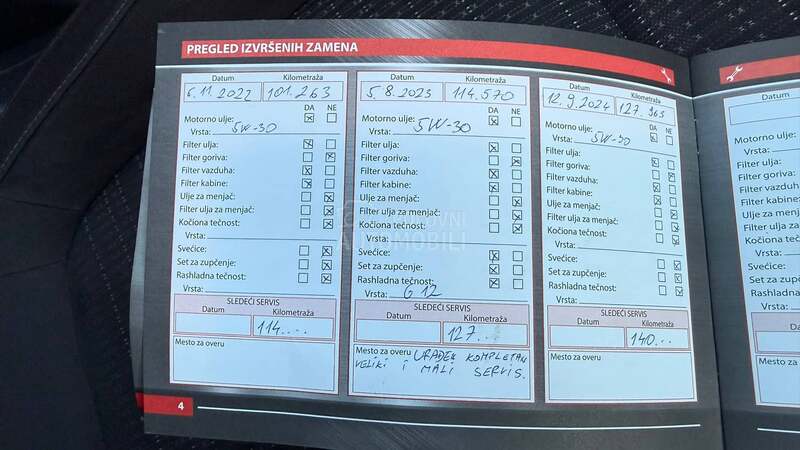 PREGLED IZVRŠENIH ZAMENA
Datum Kilometraža
6.11.2022 101.263
DA NE
Motorno ulje:
Vrsta: 5W-30
Filter ulja:
Filter goriva:
Filter vazduha:
Filter kabine:
Ulje za menjač:
Filter ulja za menjač:
Kočiona tečnost:
Vrsta:
Svećice:
Set za zupčenje:
Rashladna tečnost:
Vrsta:
SLEDEĆI SERVIS
Datum Kilometraža
114....
Mesto za overu
Datum Kilometraža
5.8.2023 114.570
DA NE
Motorno ulje:
Vrsta: 5W-30
Filter ulja:
Filter goriva:
Filter vazduha:
Filter kabine:
Ulje za menjač:
Filter ulja za menjač:
Kočiona tečnost:
Vrsta:
Svećice:
Set za zupčenje:
Rashladna tečnost:
Vrsta: G 12
SLEDEĆI SERVIS
Datum Kilometraža
127...
Mesto za overu URAĐEN KOMPLETAN
VELIKI I MALI SERVIS.
Datum Kilometraža
12.9.2024 127.365
DA NE
Motorno ulje:
Vrsta: 5W-30
Filter ulja:
Filter goriva:
Filter vazduha:
Filter kabine:
Ulje za menjač:
Filter ulja za menjač:
Kočiona tečnost:
Vrsta:
Svećice:
Set za zupčenje:
Rashladna tečnost:
Vrsta:
SLEDEĆI SERVIS
Datum Kilometraža
140...
Mesto za overu
4
Datum
Motorno ulje:
Vrsta:
Filter ulja:
Filter goriva:
Filter vazduha
Filter kabine:
Ulje za menjač
Filter ulja za m
Kočiona tečno
Vrsta:
Svećice:
Set za zupčen
Rashladna te
Vrsta:
Datum
Mesto za ov